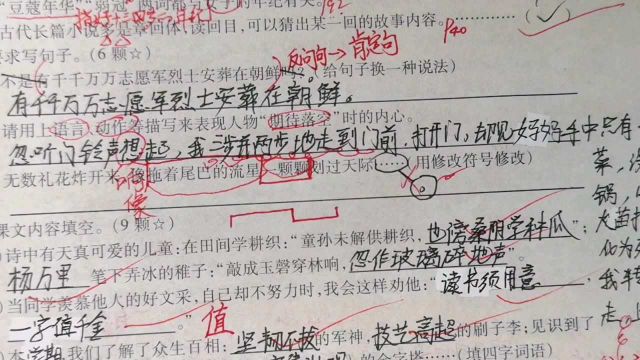 "豆蔻年华""弱冠"两词都是女子的年纪有关。
古代长篇小说多是章回体,读回目,可以猜出某一回的故事内容。
P40
反问句→肯定句
要求写句子。(6颗☆)
不是有千千万万志愿军烈士安葬在朝鲜吗?给句子换一种说法)
有千千万万志愿军烈士安葬在朝鲜。
请用上语言、动作等描写来表现人物"期待落空"时的内心。
忽听门铃声想起,我三步并两步地走到门前,打开门,却见妈妈手中只有一
无数礼花炸开来,像拖着尾巴的流星一颗颗划过天际……(用修改符号修改)
像
菜,
锅,
课文内容填空。(9颗☆)
诗中有天真可爱的儿童:在田间学耕织:"童孙未解供耕织,也傍桑阴学种瓜";
杨万里笔下弄冰的稚子:"敲成玉磬穿林响,忽作玻璃碎地声"。
当同学羡慕他人的好文采,自己却不努力时,我会这样劝他:"读书须用意,
一字值千金。"
值
本学期,我们了解了众生百相:坚韧不拔的军神,技艺高超的刷子李;见识了
(填四字词语)